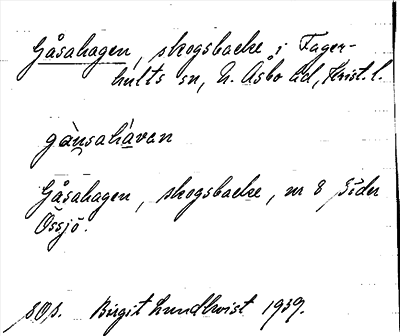 Gåsahagen, skogsbacke i Fager-
hults sn, N. Åsbo hd, Krist. l.
gànsahàvan
Gåsahagen, skogsbacke, nr 8 Söder
Össjö.
Birgit Lundkvist 1939.